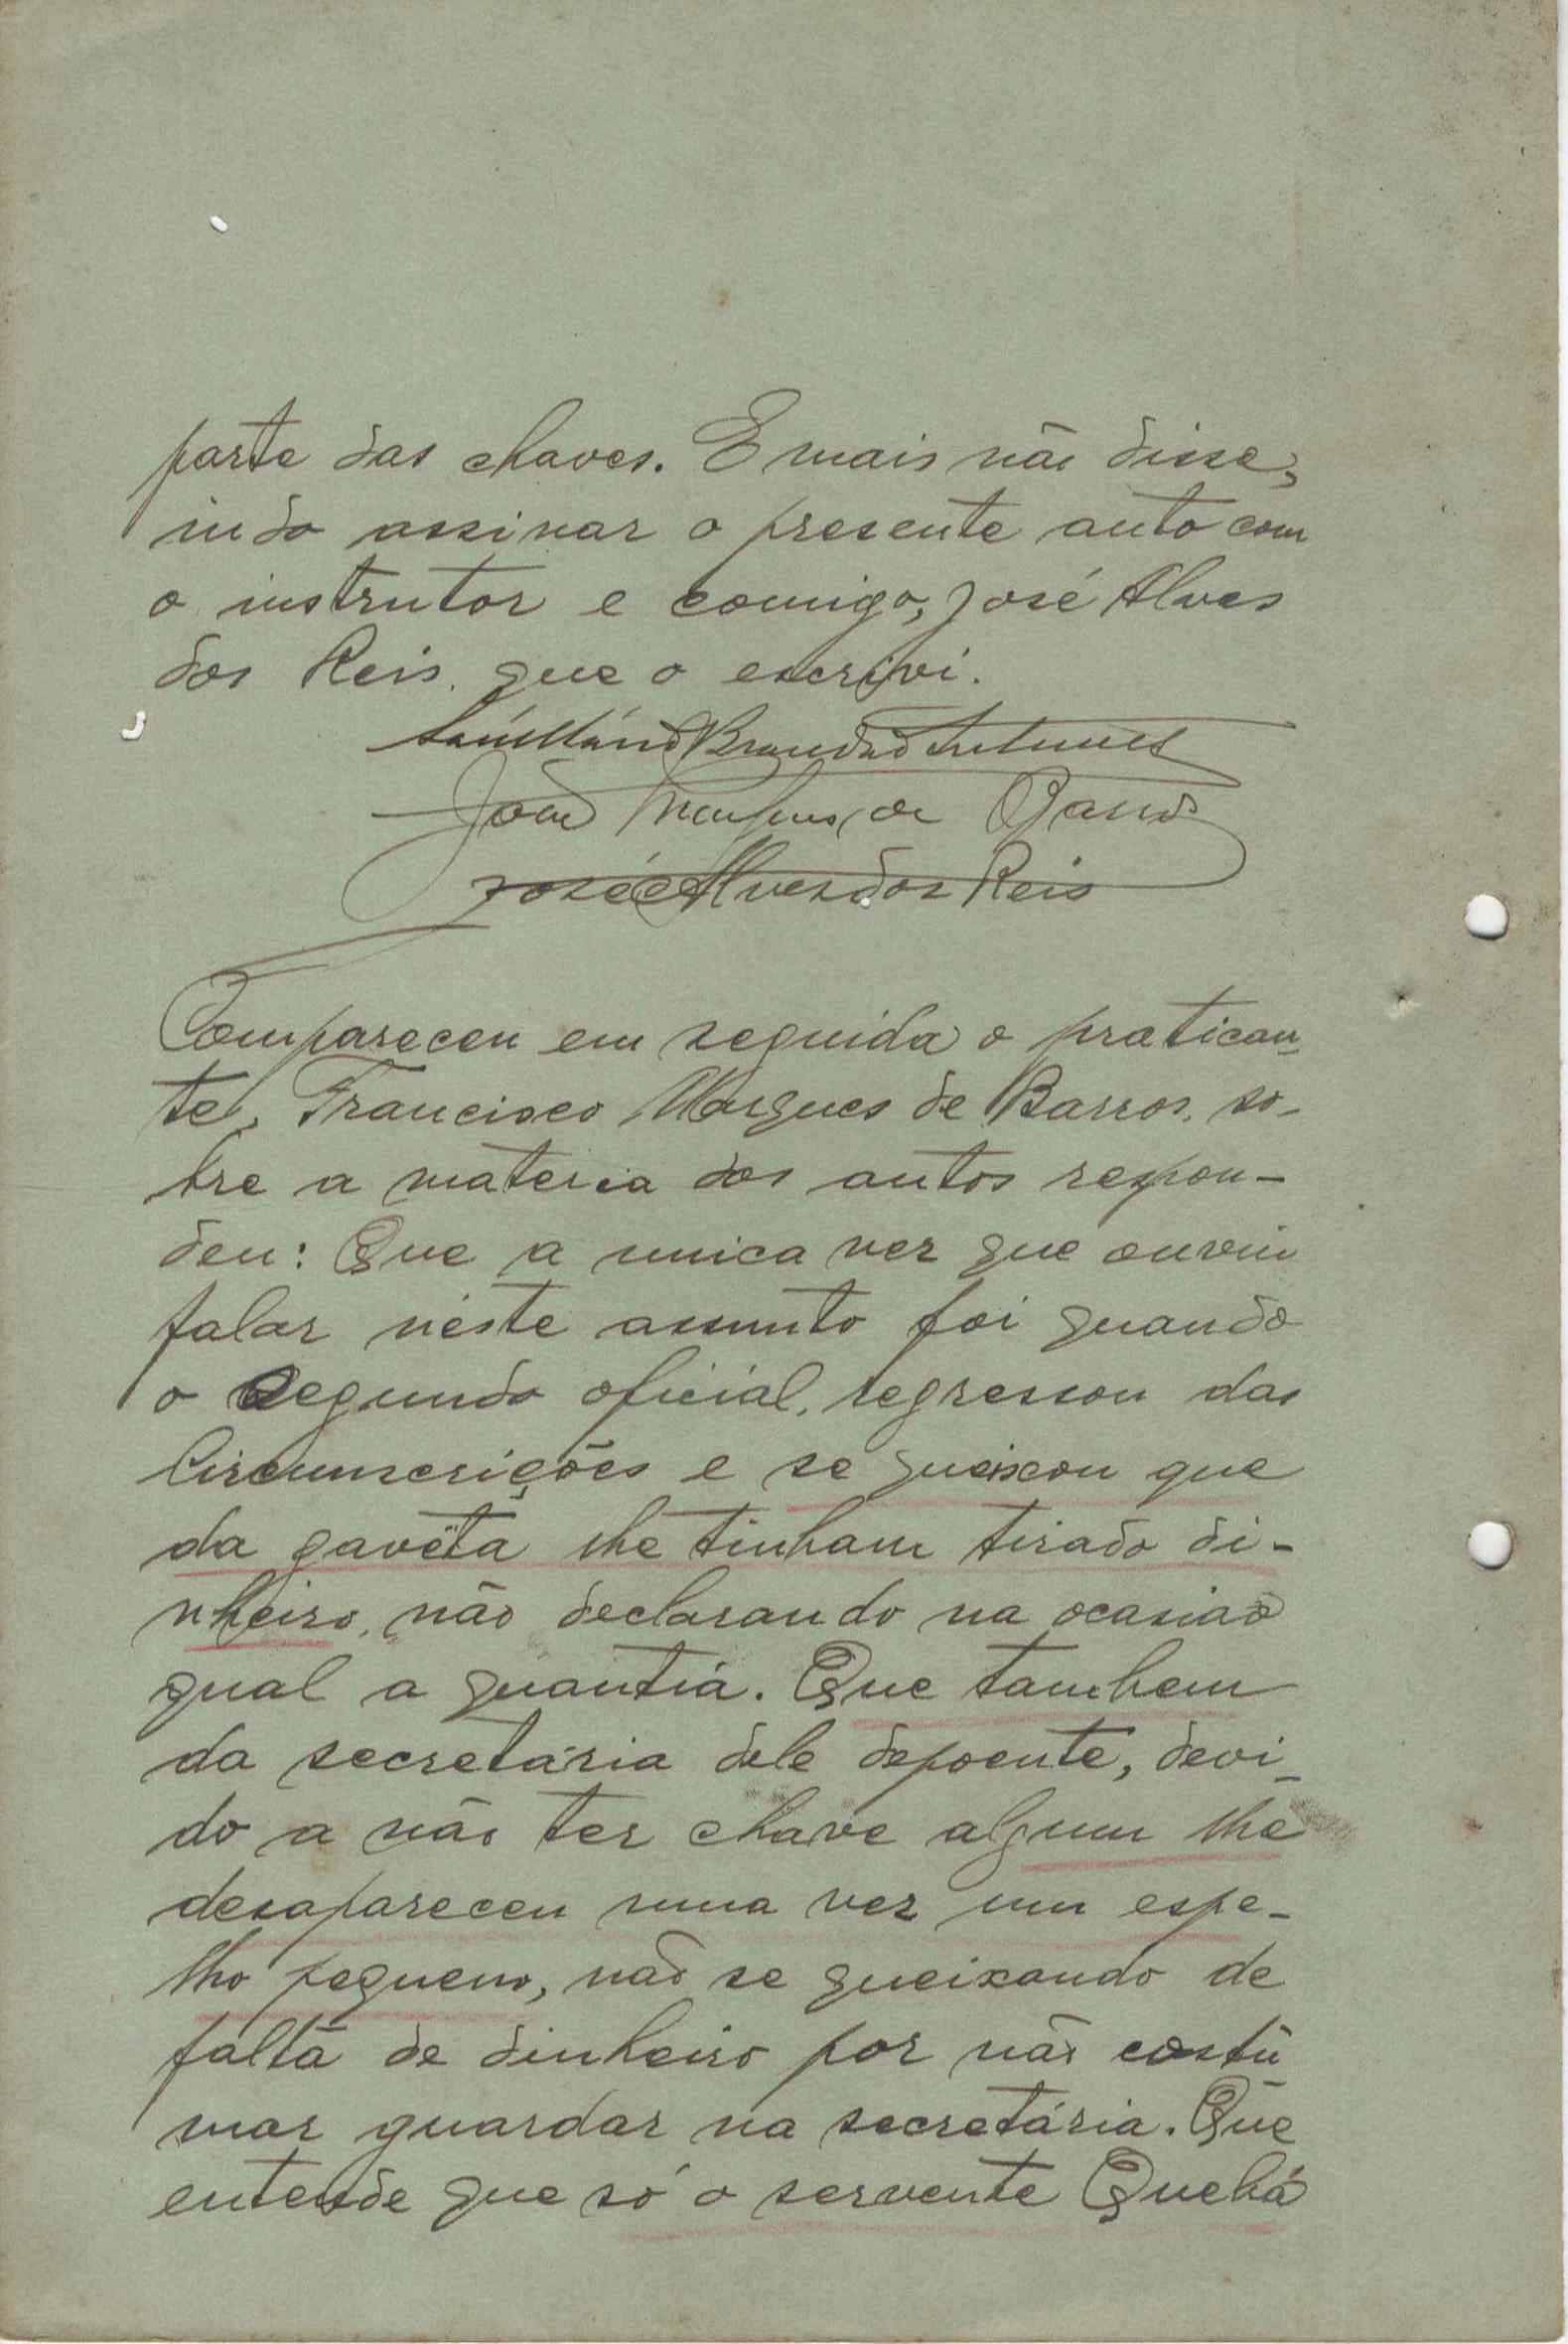 parte das chaves. E mais não disse,
indo assinar o presente auto com
o instrutor e comigo, José Alves
dos Reis, que o escrivi.
Brandão Antunes
João Marques de Barros
José Alves dos Reis
Compareceu em seguida o pratican-
te, Francisco Marques de Barros, so-
bre a materia dos autos respon-
deu: Que a unica vez que ouviu
falar nêste assunto foi quando
o segundo oficial, regressou das
Circumscrições e se queixou que
da gavêta lhe tinham tirado di-
nheiro, não declarando na ocasião
qual a quantia. Que tambem
da secretária dele depoente, devi-
do a não ter chave algum lhe
desapareceu numa vez um espe-
lho pequeno, não se queixando de
falta de dinheiro por não costu
mar guardar na secretária. Que
entende que só o servente Quebá